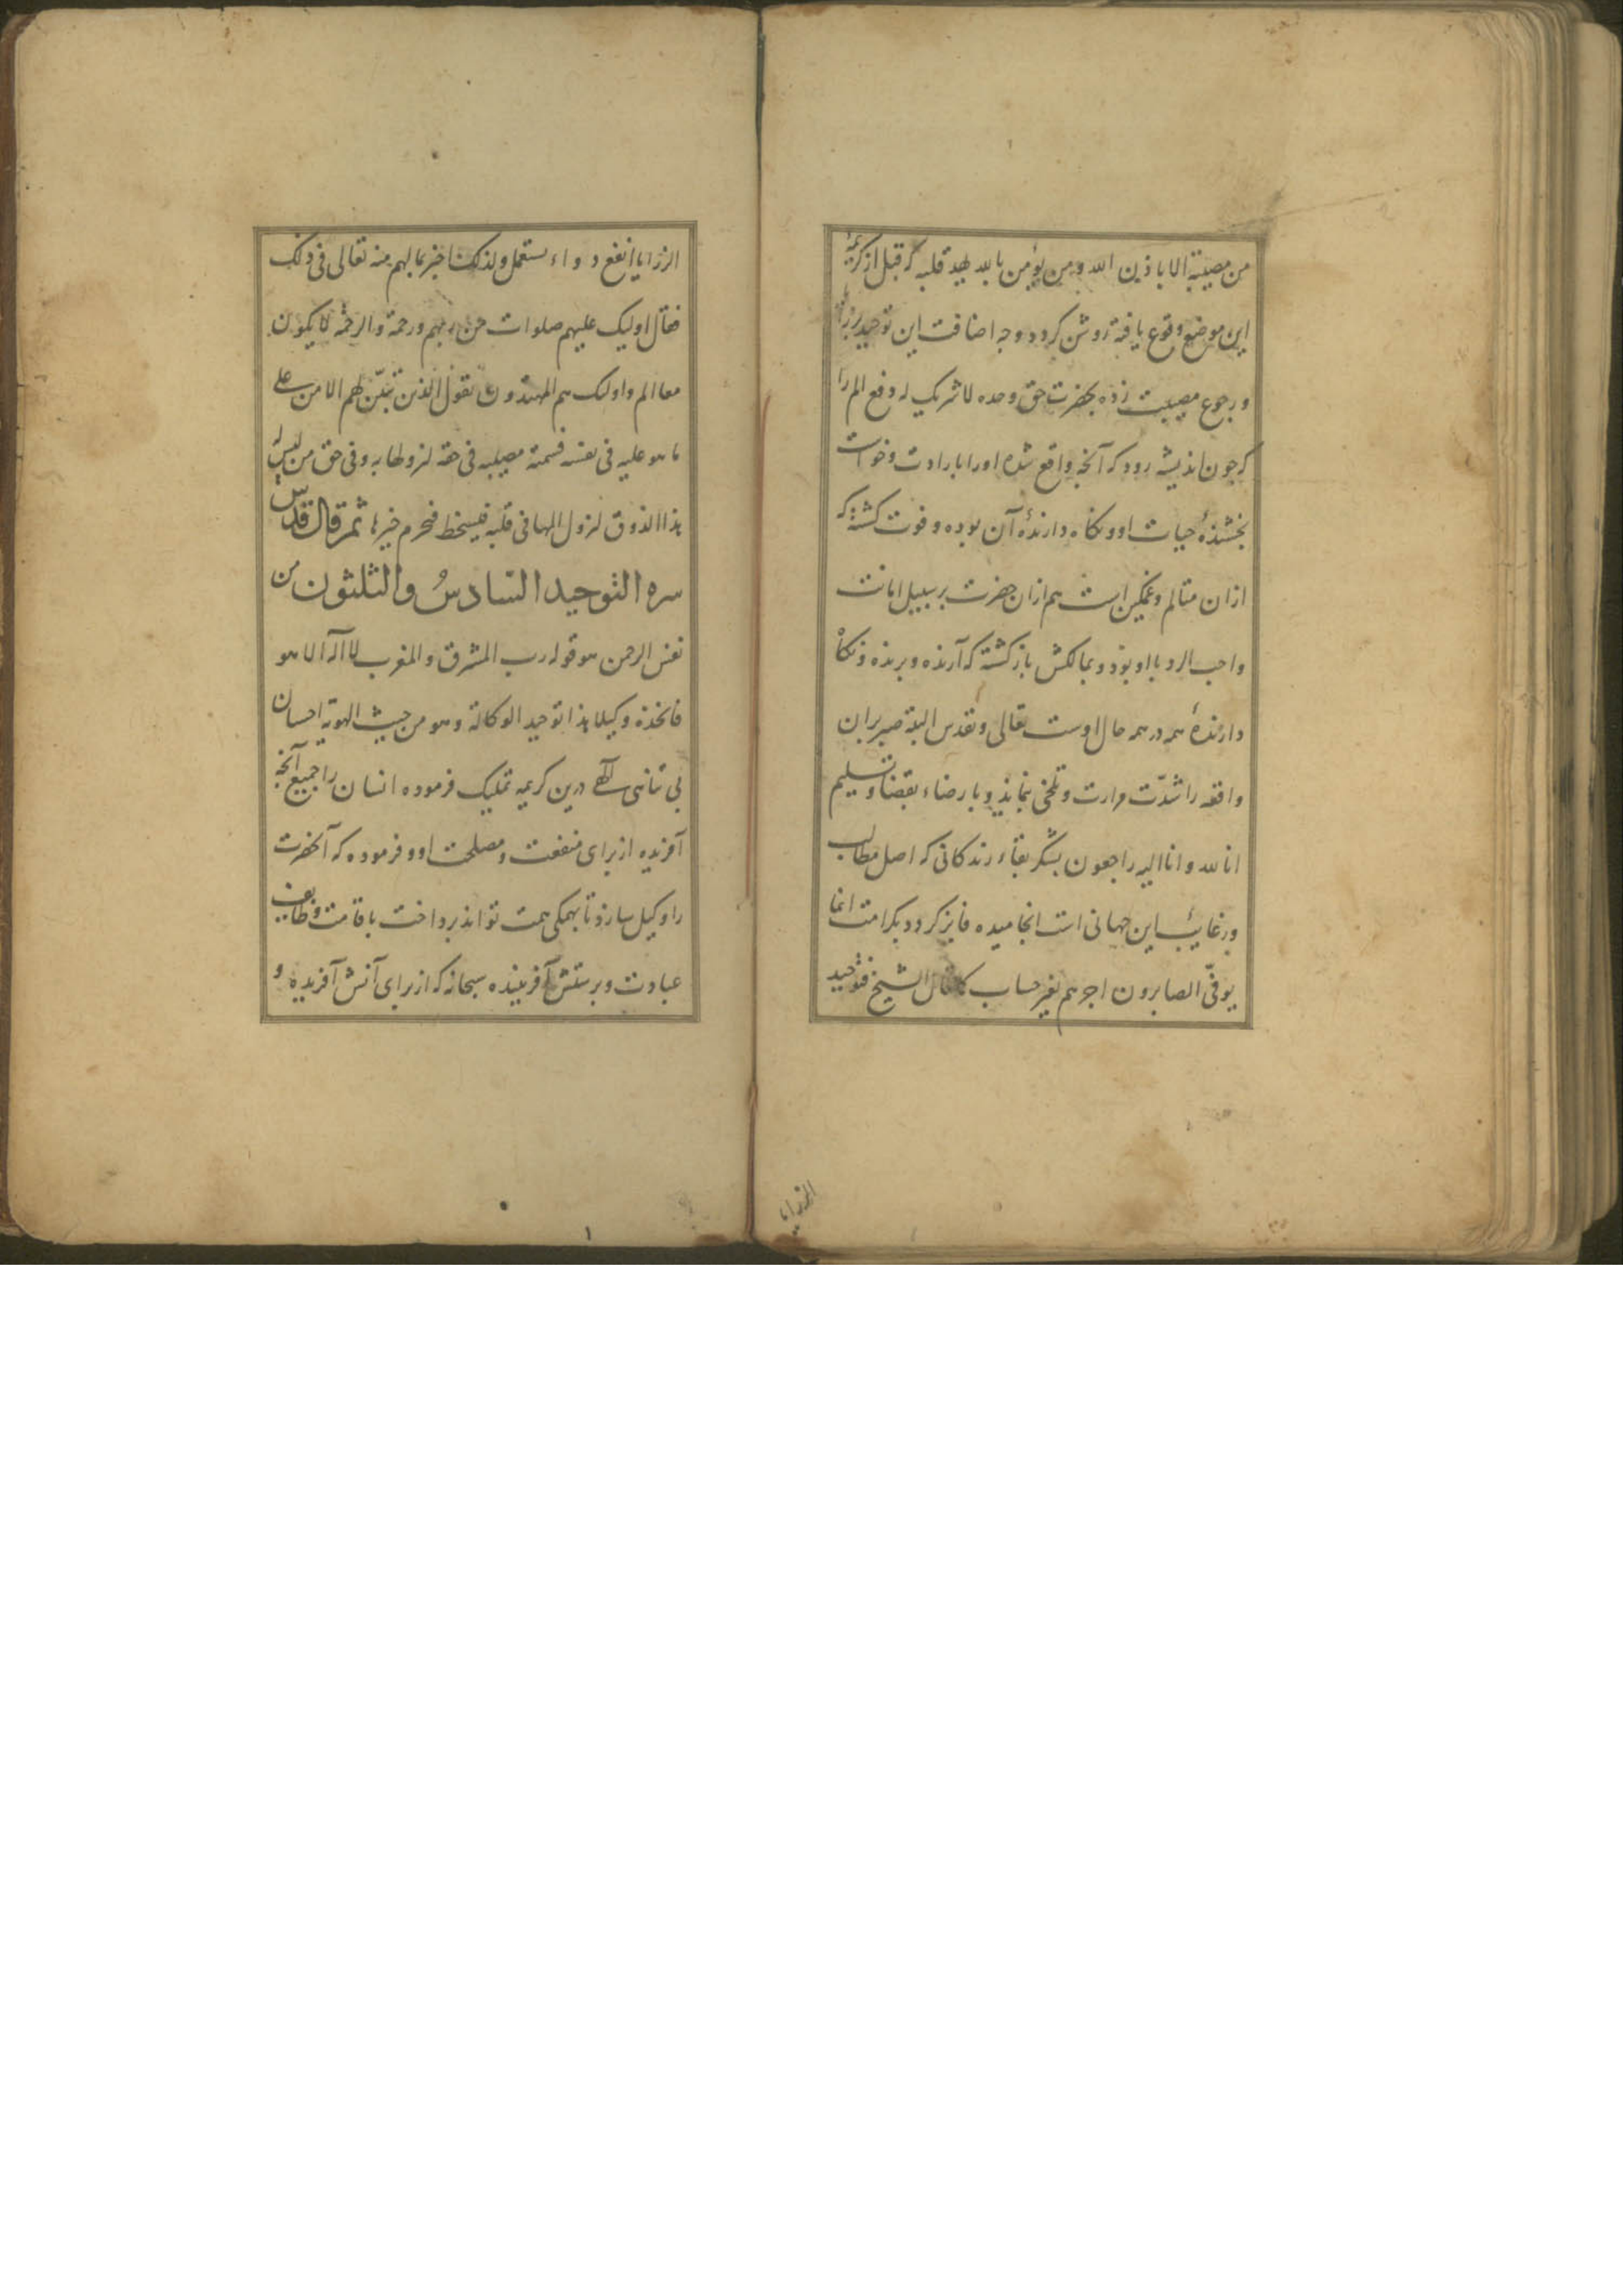 من مصیبة الا باذن الله و من یؤمن بالله یهد قلبه که قبل از کریمۀ
این موضع وقوع یافته روشن کردد وجه اضافت این توحید برزایا
و رجوع مصیبت زده بحضرت حق وحده لا شریک له و فع الم را
که جون اندیشه رود که آنجه واقع شده او را با رادت و خواست
بخشندۀ حیات او و نکاه دارندۀ آن بوده و فوت کشته که
ازان متالم و غمکین است هم ازان حضرت بر سبیل امانت
واجب الرد با او بود و بمالکش باز کشته که آرنده و برنده و نکاه
دارندۀ همه در همه حال اوست تعالی و تقدس البتة صبر بران
واقعه را شدّت مرارت و تلخی نماند و با رضاء بقضا و تسلیم
انا لله و انا الیه راجعون بشکر بقاء زندکانی که اصل مطالب
و رغایب این جهانی است انجامیده فایز کردد بکرامت انما
یوفّی الصابرون اجرهم بغیر حساب کما قال الشیخ فتوحید
الرزایا
الرزایا انفع دواء یستعمل ولذلک اخبر بما لهم منه تعالی فی ذلک
فقال اولیک علیهم صلوات من ربهم ورحمة والرحمة لا یکون
مع الم واولیک هم المهتدون یقول الذین تبیّن لهم الامر علی
ما هو علیه فی نفسه فسمته مصیبه فی حقه لنزولها به وفی حق من لیس له
هذا الذوق لنزول المها فی قلبه فیسخط فیحرم خیرها ثم قال قدس
سره التوحید السّادسُ والثلثون من
نفس الرحمن هو قوله رب المشرق والمغرب لا اله الا هو
فاتخذه وکیلا هذا توحید الوکالة وهو من حیث الهویة احسان
بی تناهی الٓهی درین کریمه تملیک فرموده انسان را جمیع آنجه
آفریده از برای منفعت و مصلحت او و فرموده که آنحضرت
را وکیل سازد تا بهمکی همت تواند برداخت باقامت وظایف
عبادت و برستش آفریننده سبحانه که از برای آنش آفریده و